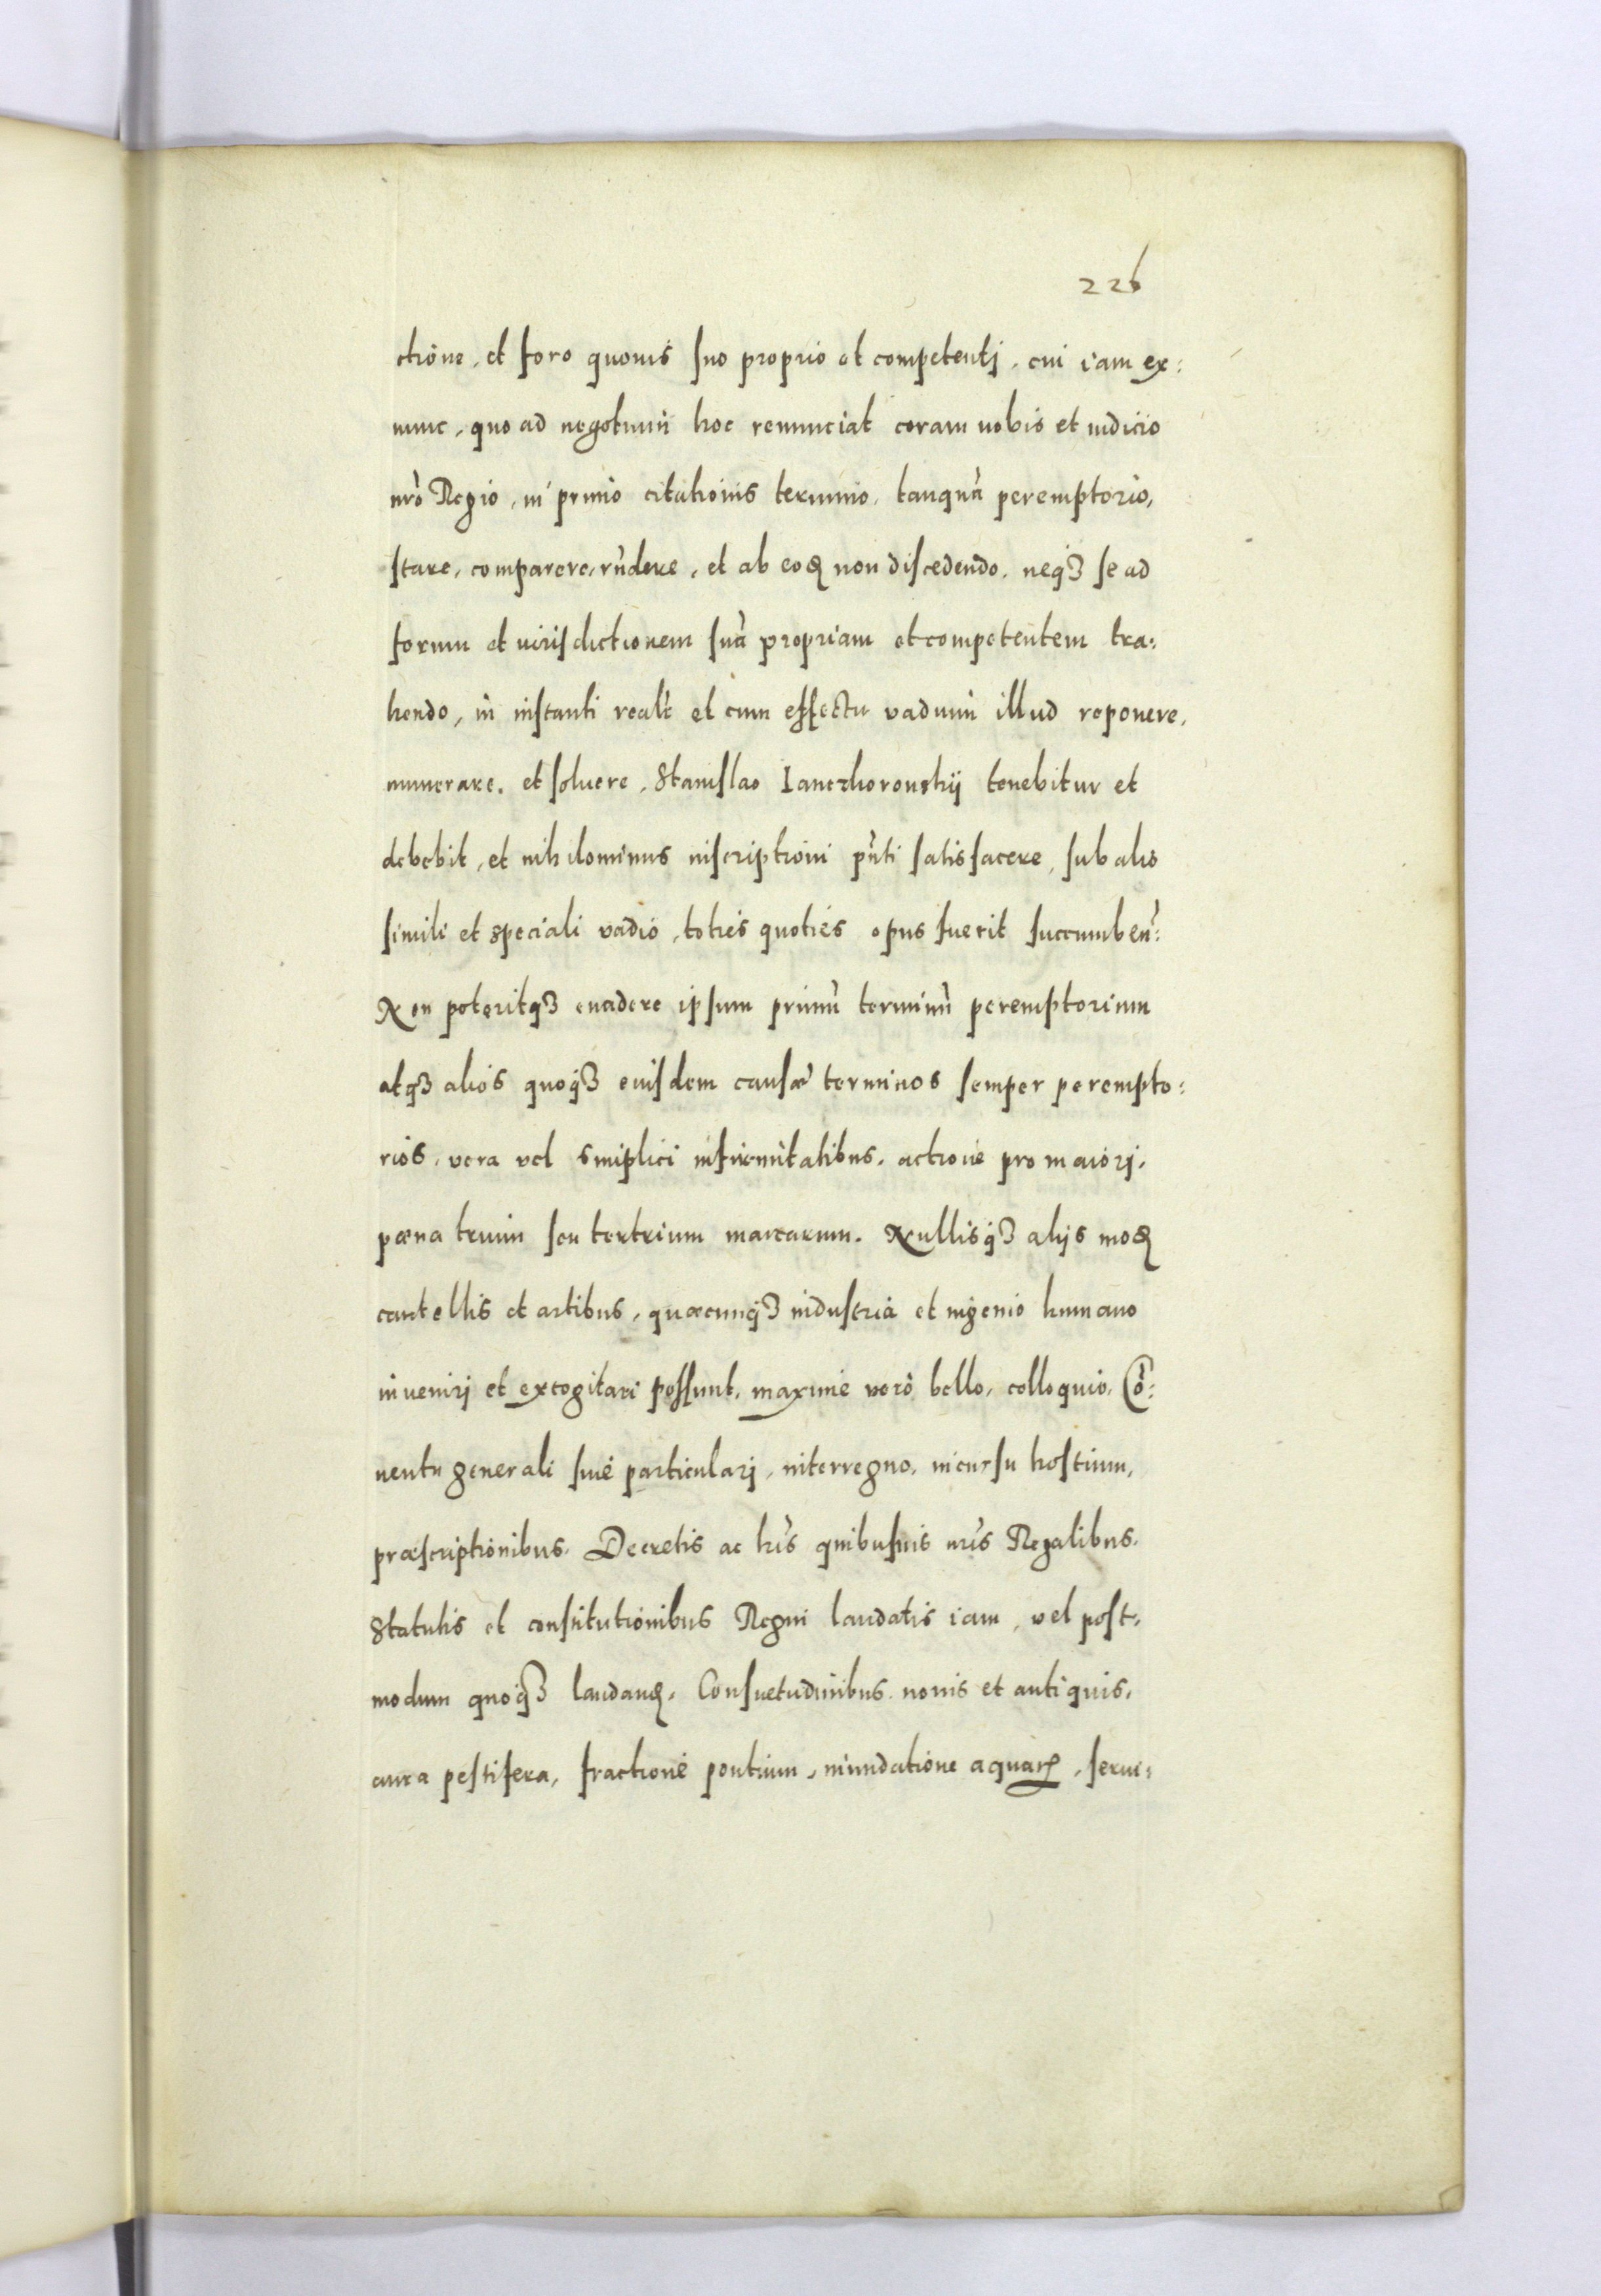 226
ctione, et foro quouis suo proprio et competentj, cui iam ex:
nunc, quo ad negotium hoc renunciat coram nobis et iudicio
nr̃o Regio, in primo citationis termino, tanquã peremptorio,
stare, comparere, rñdere, et ab eoꝝ non discedendo, neqꝫ se ad
forum et iurisdictionem suã propriam et competentem tra:
hendo, in instanti realr̃ et cum effectu vadium illud reponere,
numerare, et soluere, Stanislao Ianczhorouskij tenebitur et
debebit, et nihilominus inscriptioni pñti satisfacere, sub alio
simili et speciali vadio, toties quoties opus fuerit succumbeñ:
Non poteritqꝫ euadere ipsum primũ terminũ peremptorium
atqꝫ alios quoqꝫ eiusdem causæ terminos semper perempto:
rios, vera vel simplici infirmitatibus, actione pro maiorj,
pœna trium seu tertrium marcarum. Nullisqꝫ alijs moꝝ
cautellis et artibus, quæcunqꝫ industria et ingenio humano
inuenirj et excogitari possunt, maxime verò bello, colloquio, Cõ:
uentu generali siue particularj, interregno, incursu hostium,
præscriptionibus, Decretis ac lr̃is quibusuis nr̃is Regalibus,
Statutis et constitutionibus Regni laudatis iam, vel post,
modum quoqꝫ laudanꝝ, Consuetudinibus nouis et antiquis,
aura pestifera, fractione pontium, inundatione aquaꝝ, serui: